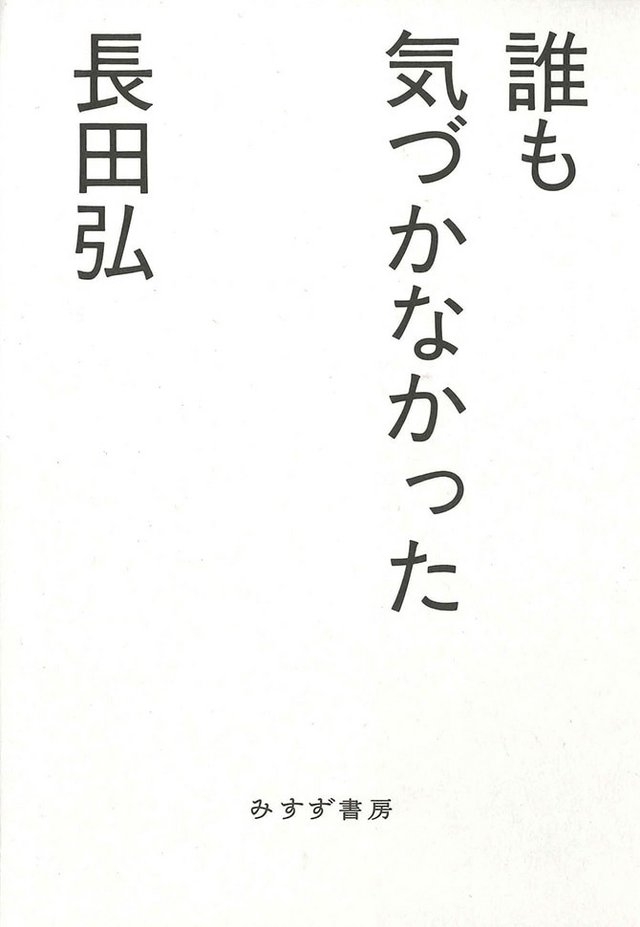 誰も
気づかなかった
長田弘
みすず書房